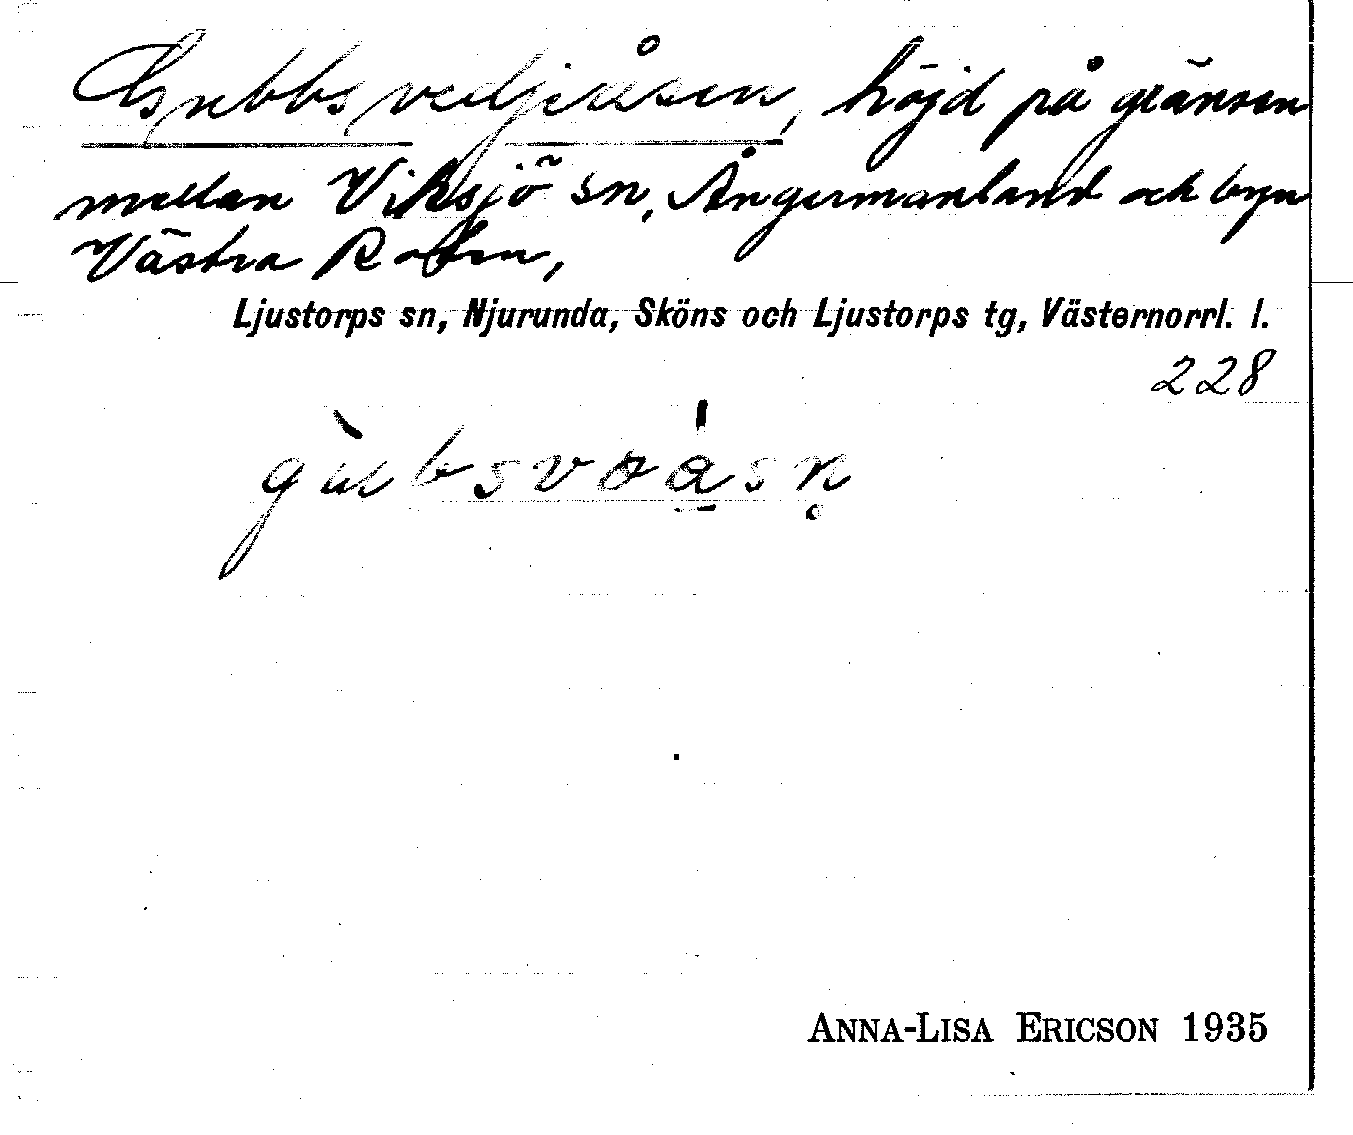 Gubbsvedjeåsen, höjd på gränsen
mellan Viksjö sn, Ångermanland och byn
Västra
Ljustorps sn, Njurunda, Sköns och Ljustorps tg, Västernorrl. l.
228
ANNA-LISA ERICSON 1935